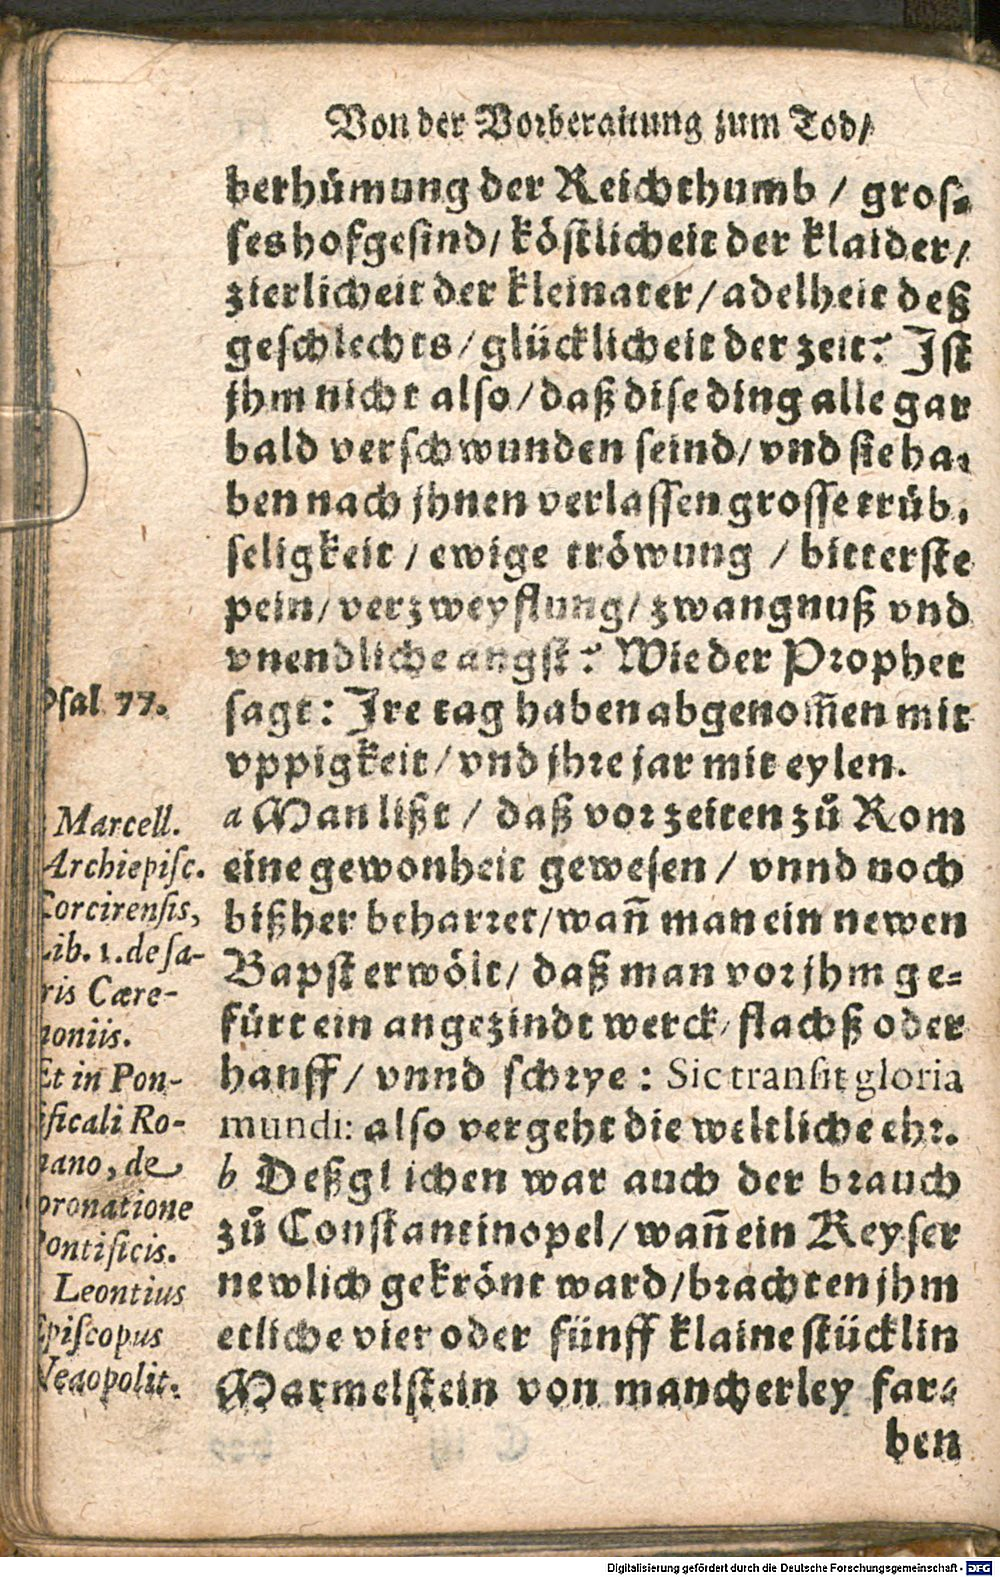 Von der Vorberaitung zum Tod/
berhümung der Reichthumb / gros-
ses hofgesind/ köstlicheit der klaider/
zierlicheit der kleinater/ adelheit deß
geschlechts/ glücklicheit der zeit? Ist
jhm nicht also/ daß dise ding alle gar
bald verschwunden seind/ vnd sie ha-
ben nach jhnen verlassen grosse trüb-
seligkeit / ewige tröwung / bitterste
pein/ verzweyflung/ zwangnuß vnd
vnendliche angst? Wie der Prophet
Psal 77.
sagt: Ire tag haben abgenom̃en mit
vppigkeit/ vnd jhre jar mit eylen.
a Man lißt / daß vor zeiten zů Rom
eine gewonheit gewesen / vnnd noch
bißher beharret/ wañ man ein newen
Bapst erwölt/ daß man vor jhm ge-
fürt ein angezindt werck/ flachß oder
hanff/ vnnd schrye: Sic transit gloria
mundi: also vergeht die weltliche ehr.
b Deßglichen war auch der brauch
zů Constantinopel/ wañ ein Keyser
newlich gekrönt ward/ brachten jhm
etliche vier oder fünff klaine stücklin
Marmelstein von mancherley far-
ben
Marcell.
Archiepisc.
Corcirensis,
Lib. 1. de sa-
ris Cære-
moniis.
Et in Pon-
ificali Ro-
mano, de
oronatione
Pontificis.
Leontius
Episcopus
Neaopolit.
Digitalisierung gefördert durch die Deutsche Forschungsgemeinschaft - DFG